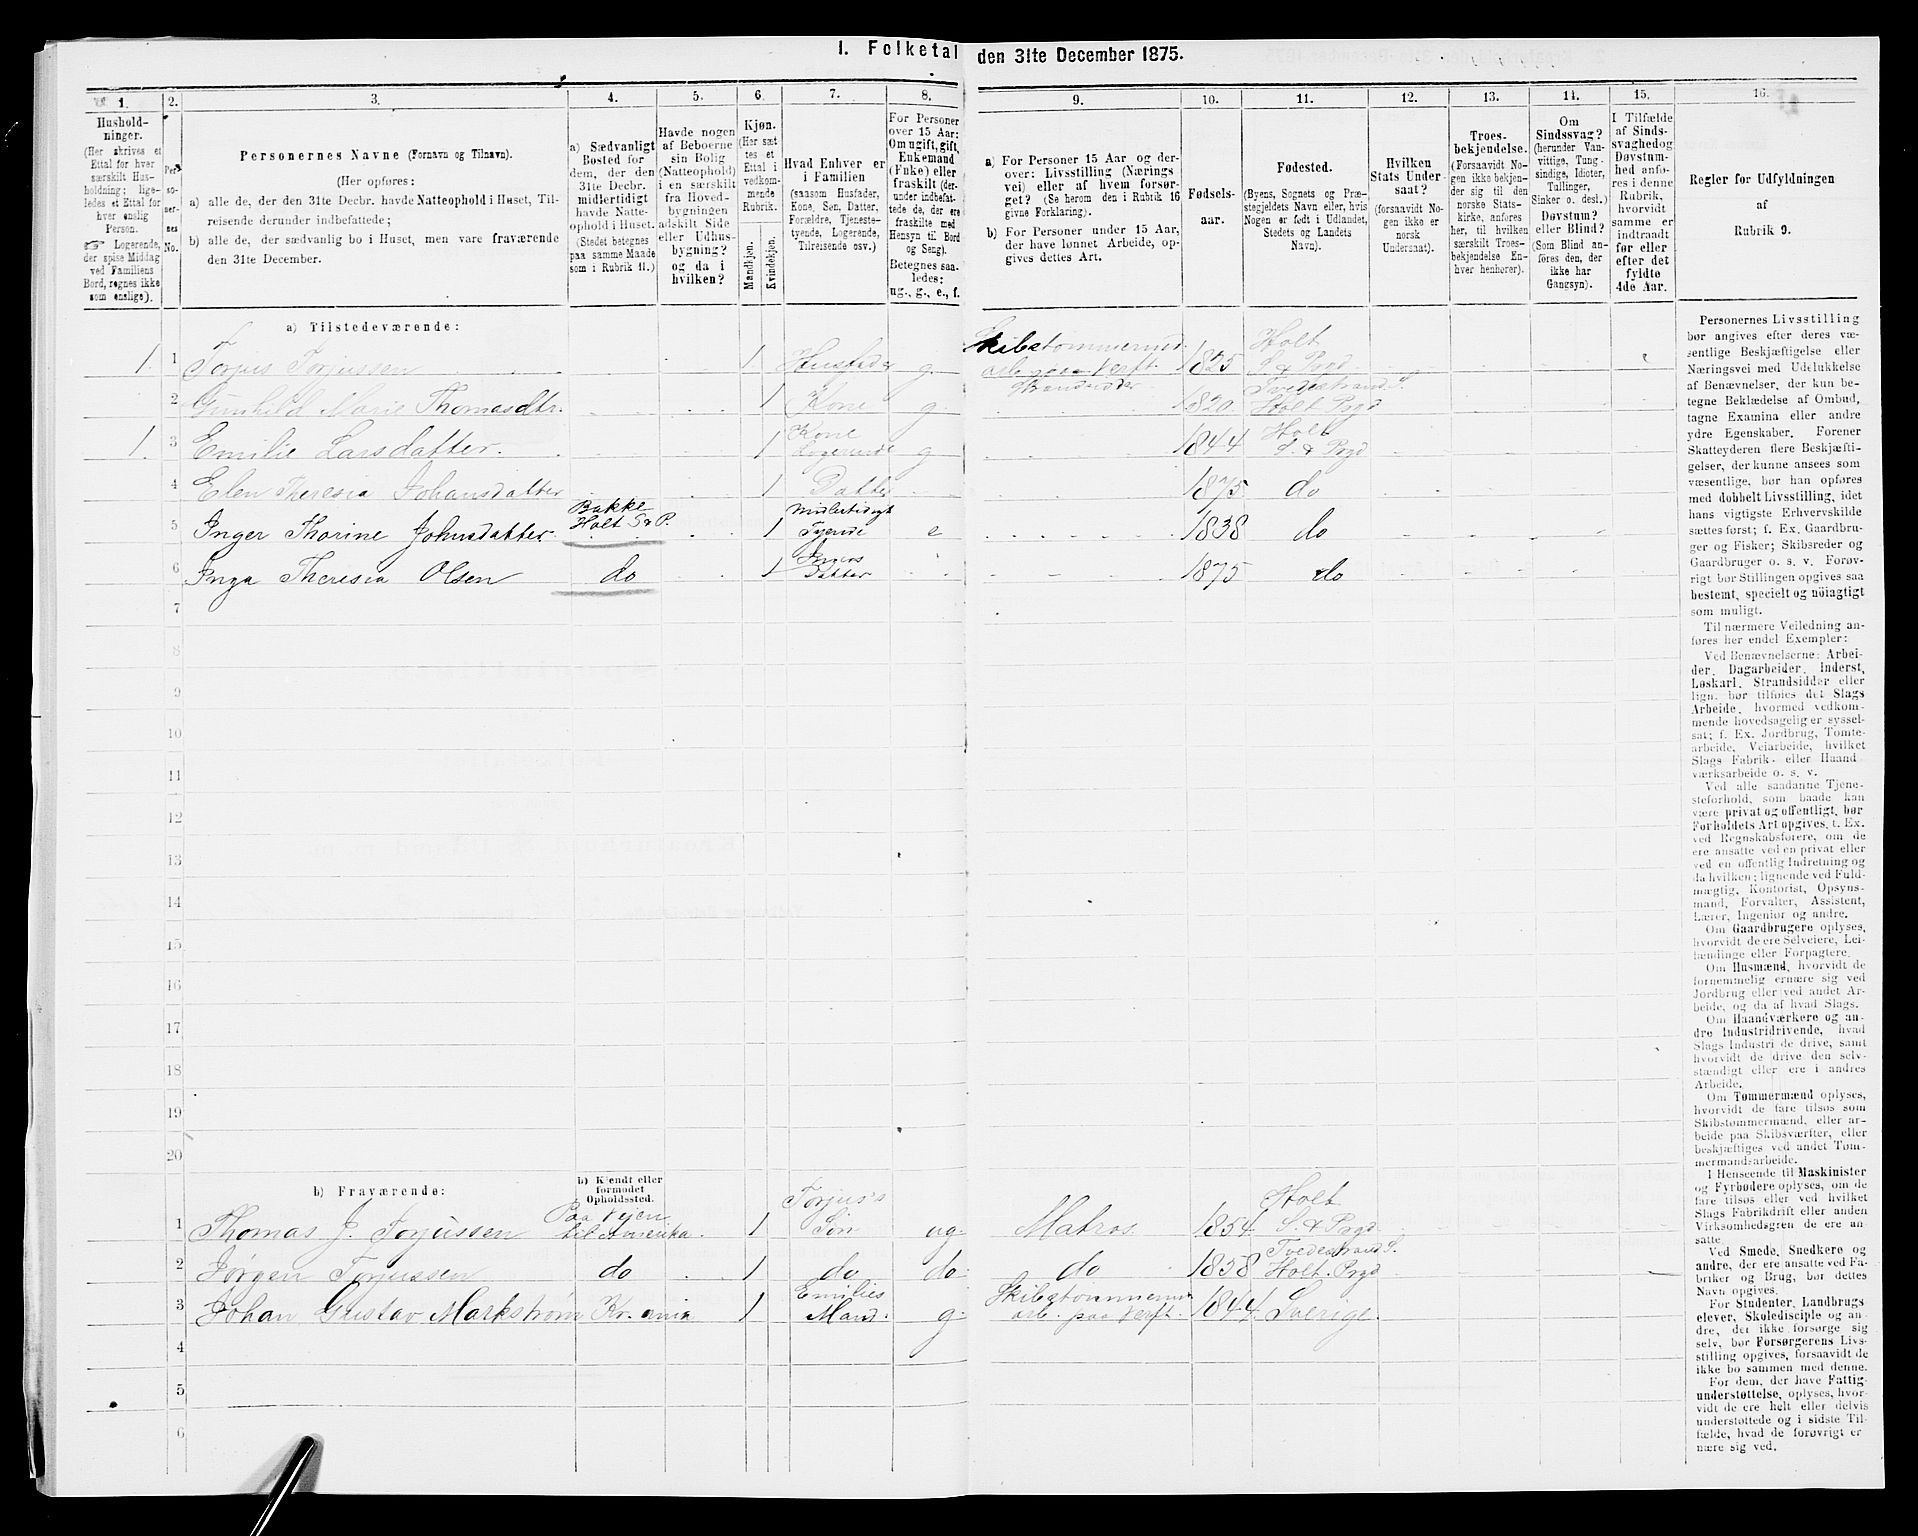 I. Folketal den 31te December 1875.
1. 2. 3. 4. 5. 6. 7. 8. 9. 10. 11. 12. 13. 14. 15. 16.
Hushold-
ninger.
(Her skrives et
Ettal for hver
særskilt Hus-
holdning; lige-
ledes et Ettal for
hver enslig
Person.
☞ Logerende,
der spise Middag
ved Familiens
Bord, regnes ikke
som enslige).
Per-
so-
ner-
nes
No.
Personernes Navne (Fornavn og Tilnavn).
(Her opføres:
a) alle de, der den 31te Decbr. havde Natteophold i Huset, Til-
reisende derunder indbefattede;
b) alle de, der sædvanlig bo i Huset, men vare fraværende
den 31te December.
a) Sædvanligt
Bosted for
dem, der den
31te Decbr.
midlertidigt
havde Natte-
ophold i Huset.
(Stedet betegnes
paa samme Maade
som i Rubrik 11.)
Havde nogen
af Beboerne
sin Bolig
(Natteophold)
i en særskilt
fra Hoved-
bygningen
adskilt Side
eller Udhus-
bygning?
og da i
hvilken?
Kjøn.
(Her sæt-
tes et
Ettal i
vedkom-
mende
Rubrik.
Mandkjøn.
Kvindekjøn.
Hvad Enhver er
i Familien
(saasom Husfader,
Kone, Søn, Datter,
Forældre, Tjeneste-
tyende, Logerende,
Tilreisende osv.)
For Personer
over 15 Aar:
Om ugift, gift,
Enkemand
(Enke) eller
fraskilt (der-
under indbefat-
tede de, der ere
fraskilte med
Hensyn til Bord
og Seng).
Betegnes saa-
ledes:
ug., g., e., f.
a) For Personer 15 Aar og der-
over: Livsstilling (Nærings
vei) eller af hvem forsør-
get? (Se herom den i Rubrik 16
givne Forklaring).
b) For Personer under 15 Aar,
der have lønnet Arbeide, op-
gives dettes Art.
Fødsels-
aar.
Fødested.
(Byens, Sognets og Præ-
stegjeldets Navn eller, hvis
Nogen er født i Udlandet,
Stedets og Landets
Navn).
Hvilken
Stats Under
saat?
(forsaavidt No-
gen ikke er
norsk
Undersaat).
Troes-
bekjendelse.
(Forsaavidt No-
gen ikke bekjen-
der sig til den
norske Stats-
kirke, anføres
her, til hvilken
særskilt Troes-
bekjendelse En-
hver henhører).
Om
Sindssvag?
(herunder Van-
vittige, Tung-
sindige, Idioter,
Tullinger,
Sinker o. desl.)
Døvstum?
eller Blind?
(Som Blind an-
føres den, der
ikke har
Gangsyn).
I Tilfælde
af Sinds-
svaghed og
Døvstum-
hed anfø-
res i denne
Rubrik,
hvorvidt
samme er
indtraadt
før eller
efter det
fyldte
4de Aar.
Regler for Udfyldningen
af
Rubrik 9.
a) Tilstedeværende:
1. 1 Torjus Torjussen 1 Husfader g. Skibstømmermd. arb. paa Verft. Strandsidder 1825 Holt S & Pgd
2 Gunhild Marie Thomasdtr. 1 Kone g. 1820 Tvedestrand S. Holt Pgd
1. 3 Emilie Larsdatter. 1 Kone Logerende g 1844 Holt S. & Pgd
4 Elen Theresia Johansdatter 1 Datter 1875 do
5 Inger Thorine Johnsdatter Bakke Holt S & P. 1 Midlertidigt Tyende e 1838 do
6 Inga Theresia Olsen do 1 Ingers Datter 1875 do
7
8
9
10
11
12
13
14
15
16
17
18
19
20
b) Fraværende:
b) Kjendt eller
formodet
Opholdssted.
1 Thomas J. Torjussen Paa Vejen til Amerika. 1 Torjus's Søn ug. Matros. 1854 Holt S. & Pgd
2 Jørgen Torjussen do 1 do do. do 1858 Tvedestrand S. Holt. Pgd
3 Johan Gustav Markstrøm Kr.ania 1 Emilies Mand. g. Skibstømmermd arb. paa Verft. 1844 Sverige.
4
5
6
Personernes Livsstilling
bør angives efter deres væ-
sentlige Beskjæftigelse eller
Næringsvei med Udelukkelse
af Benævnelser, der kun be-
tegne Beklædelse af Ombud,
tagne Examina eller andre
ydre Egenskaber. Forener
Skatteyderen flere Beskjæfti-
gelser, der kunne ansees som
væsentlige, bør han opføres
med dobbelt Livsstilling, idet
hans vigtigste Erhvervskilde
sættes først; f. Ex. Gaardbru-
ger og Fisker; Skibsreder og
Gaardbruger o. s. v. Forøv-
rigt bør Stillingen opgives saa
bestemt, specielt og nøiagtigt
som muligt.
Til nærmere Veiledning an-
føres her endel Exempler:
Ved Benævnelserne: Arbei-
der, Dagarbeider, Inderst,
Løskarl, Strandsidder eller
lign. bør tilføies det Slags
Arbeide, hvormed vedkom-
mende hovedsagelig er syssel-
sat; f. Ex. Jordbrug, Tomte-
arbeide, Veiarbeide, hvilket
Slags Fabrik- eller Haand
værksarbeide o. s. v.
Ved alle saadanne Tjene-
steforhold, som baade kan
være privat og offentligt, bør
Forholdets Art opgives, t. Ex.
ved Regnskabsførere, om de
ere ansatte ved en privat eller
ved en offentlig Indretning og
da hvilken; lignende ved Fuld-
mægtig, Kontorist, Opsyns-
mand, Forvalter, Assistent,
Lærer, Ingeniør og andre.
Om Gaardbrugere oplyses,
hvorvidt de ere Selveiere, Lei-
lændinge eller Forpagtere.
Om Husmænd, hvorvidt de
fornemmelig ernære sig ved
Jordbrug eller ved andet Ar-
beide, og da af hvad Slags.
Om Haandværkere og an-
dre Industridrivende, hvad
Slags Industri de drive, samt
hvorvidt de drive den selv-
stændigt eller ere i andres
Arbeide.
Om Tømmermænd oplyses,
hvorvidt de fare tilsøs som
Skibstømmermænd, eller ar-
beide paa Skibsværfter, eller
beskjæftiges ved andet Tøm-
mermandsarbeide.
I Henseende til Maskinister
og Fyrbødere oplyses, om de
fare tilsøs eller ved hvilket
Slags Fabrikdrift eller anden
Virksomhedsgren de ere an-
satte.
Ved Smede, Snedkere og
andre, der ere ansatte ved Fa-
briker og Brug, bør dettes
Navn opgives.
For Studenter, Landbrugs
elever, Skoledisciple og an-
dre, der ikke forsørge sig
selv, bør Forsørgerens Livs-
stilling opgives, forsaavidt de
ikke bo sammen med denne.
For dem, der have Fattig-
understøttelse, oplyses, hvor-
vidt de ere helt eller delvis
understøttede og i sidste Til-
fælde, hvad de forøvrigt er
nære sig ved.